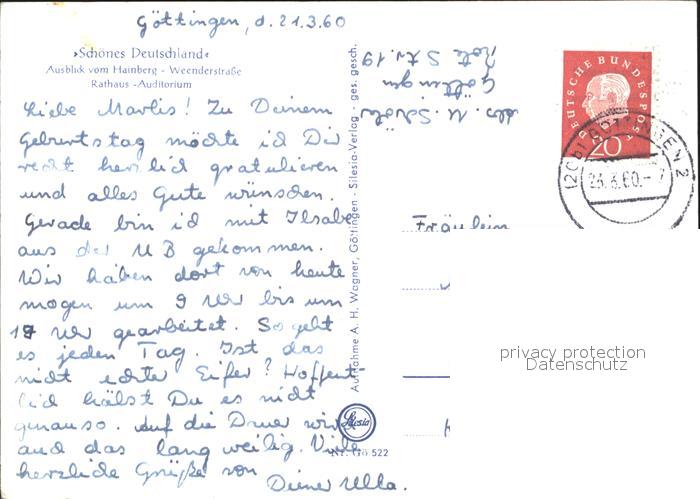 Göttingen, d. 21.3.60
»Schönes Deutschland«
Ausblick vom Hainberg - Weenderstraße
Rathaus - Auditorium
Liebe Marlis! Zu Deinem
Geburtstag möchte ich Dir
recht herzlich gratulieren
und alles Gute wünschen.
Gerade bin ich mit Ilsabe
aus der UB gekommen.
Wir haben dort von heute
morgen um 9 Uhr bis um
19 Uhr gearbeitet. So geht
es jeden Tag. Ist das
nicht echter Eifer? Hoffent-
lich hälst Du es nicht
genauso. Auf die Dauer wird
auch das langweilig. Viele
herzliche Grüße von
Deine Ulla.
Aufnahme A. H. Wagner, Göttingen - Silesia-Verlag - ges. gesch.
Silesia
Nr. 522
Abs. U.
Göttingen
Rote Str. 19
DEUTSCHE BUNDESPOST
20
(20b) GÖTTINGEN 2
60.-7
Fräulein
privacy protection
Datenschutz